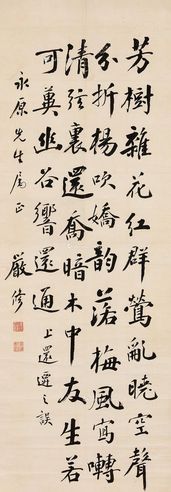 芳樹雜花紅群鶯亂曉空聲
分折楊吹嬌韻落梅風寫囀
清弦裏還喬暗木中友生若
可冀幽谷響還通 上還遷之誤
永原先生屬正 嚴修